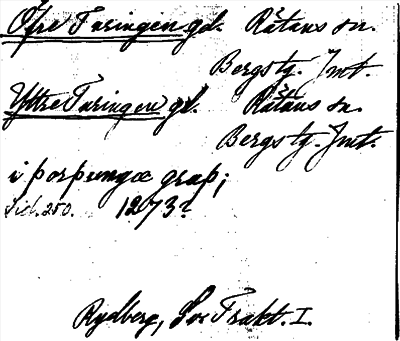 Öfre Tväringen gd. Rätans sn.
Bergs tg. Jmt.
Yttre Tväringen gd. Rätans sn.
Bergs tg. Jmt.
i þorpungæ grap;
Sid. 250. 1273?
Rydberg, Sv. Trakt. I.